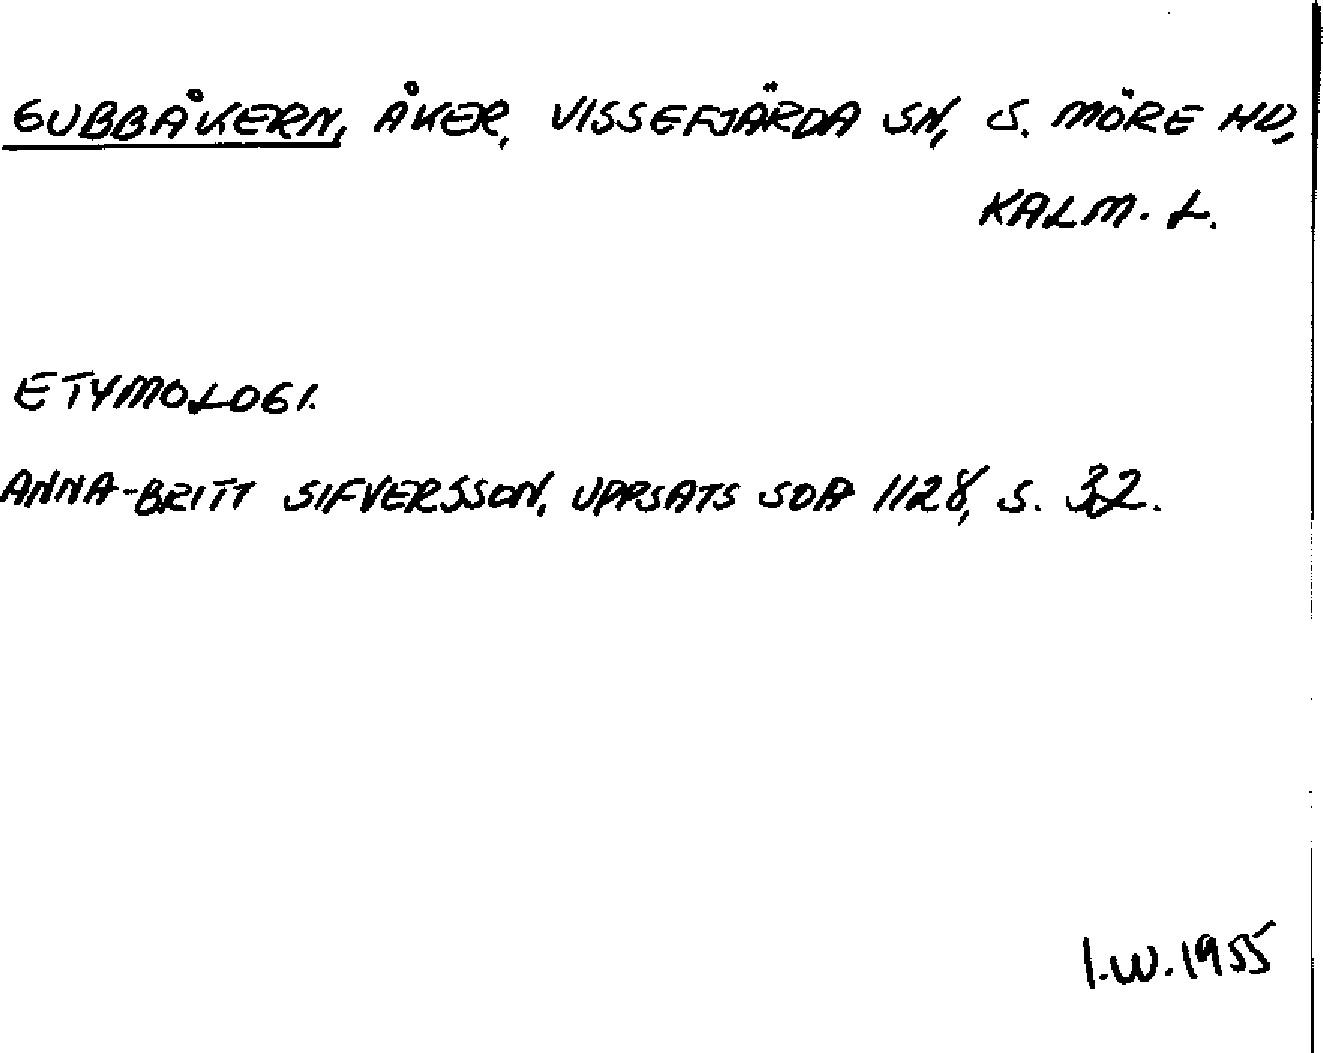 GUBBÅKERN, ÅKER, VISSEFJÄRDA SN, S. MÖRE HD,
KALM. L.
ETYMOLOGI.
ANNA-BRITT SIFVERSSON, UPPSATS SOA 1128, S. 32.
I.W. 1955